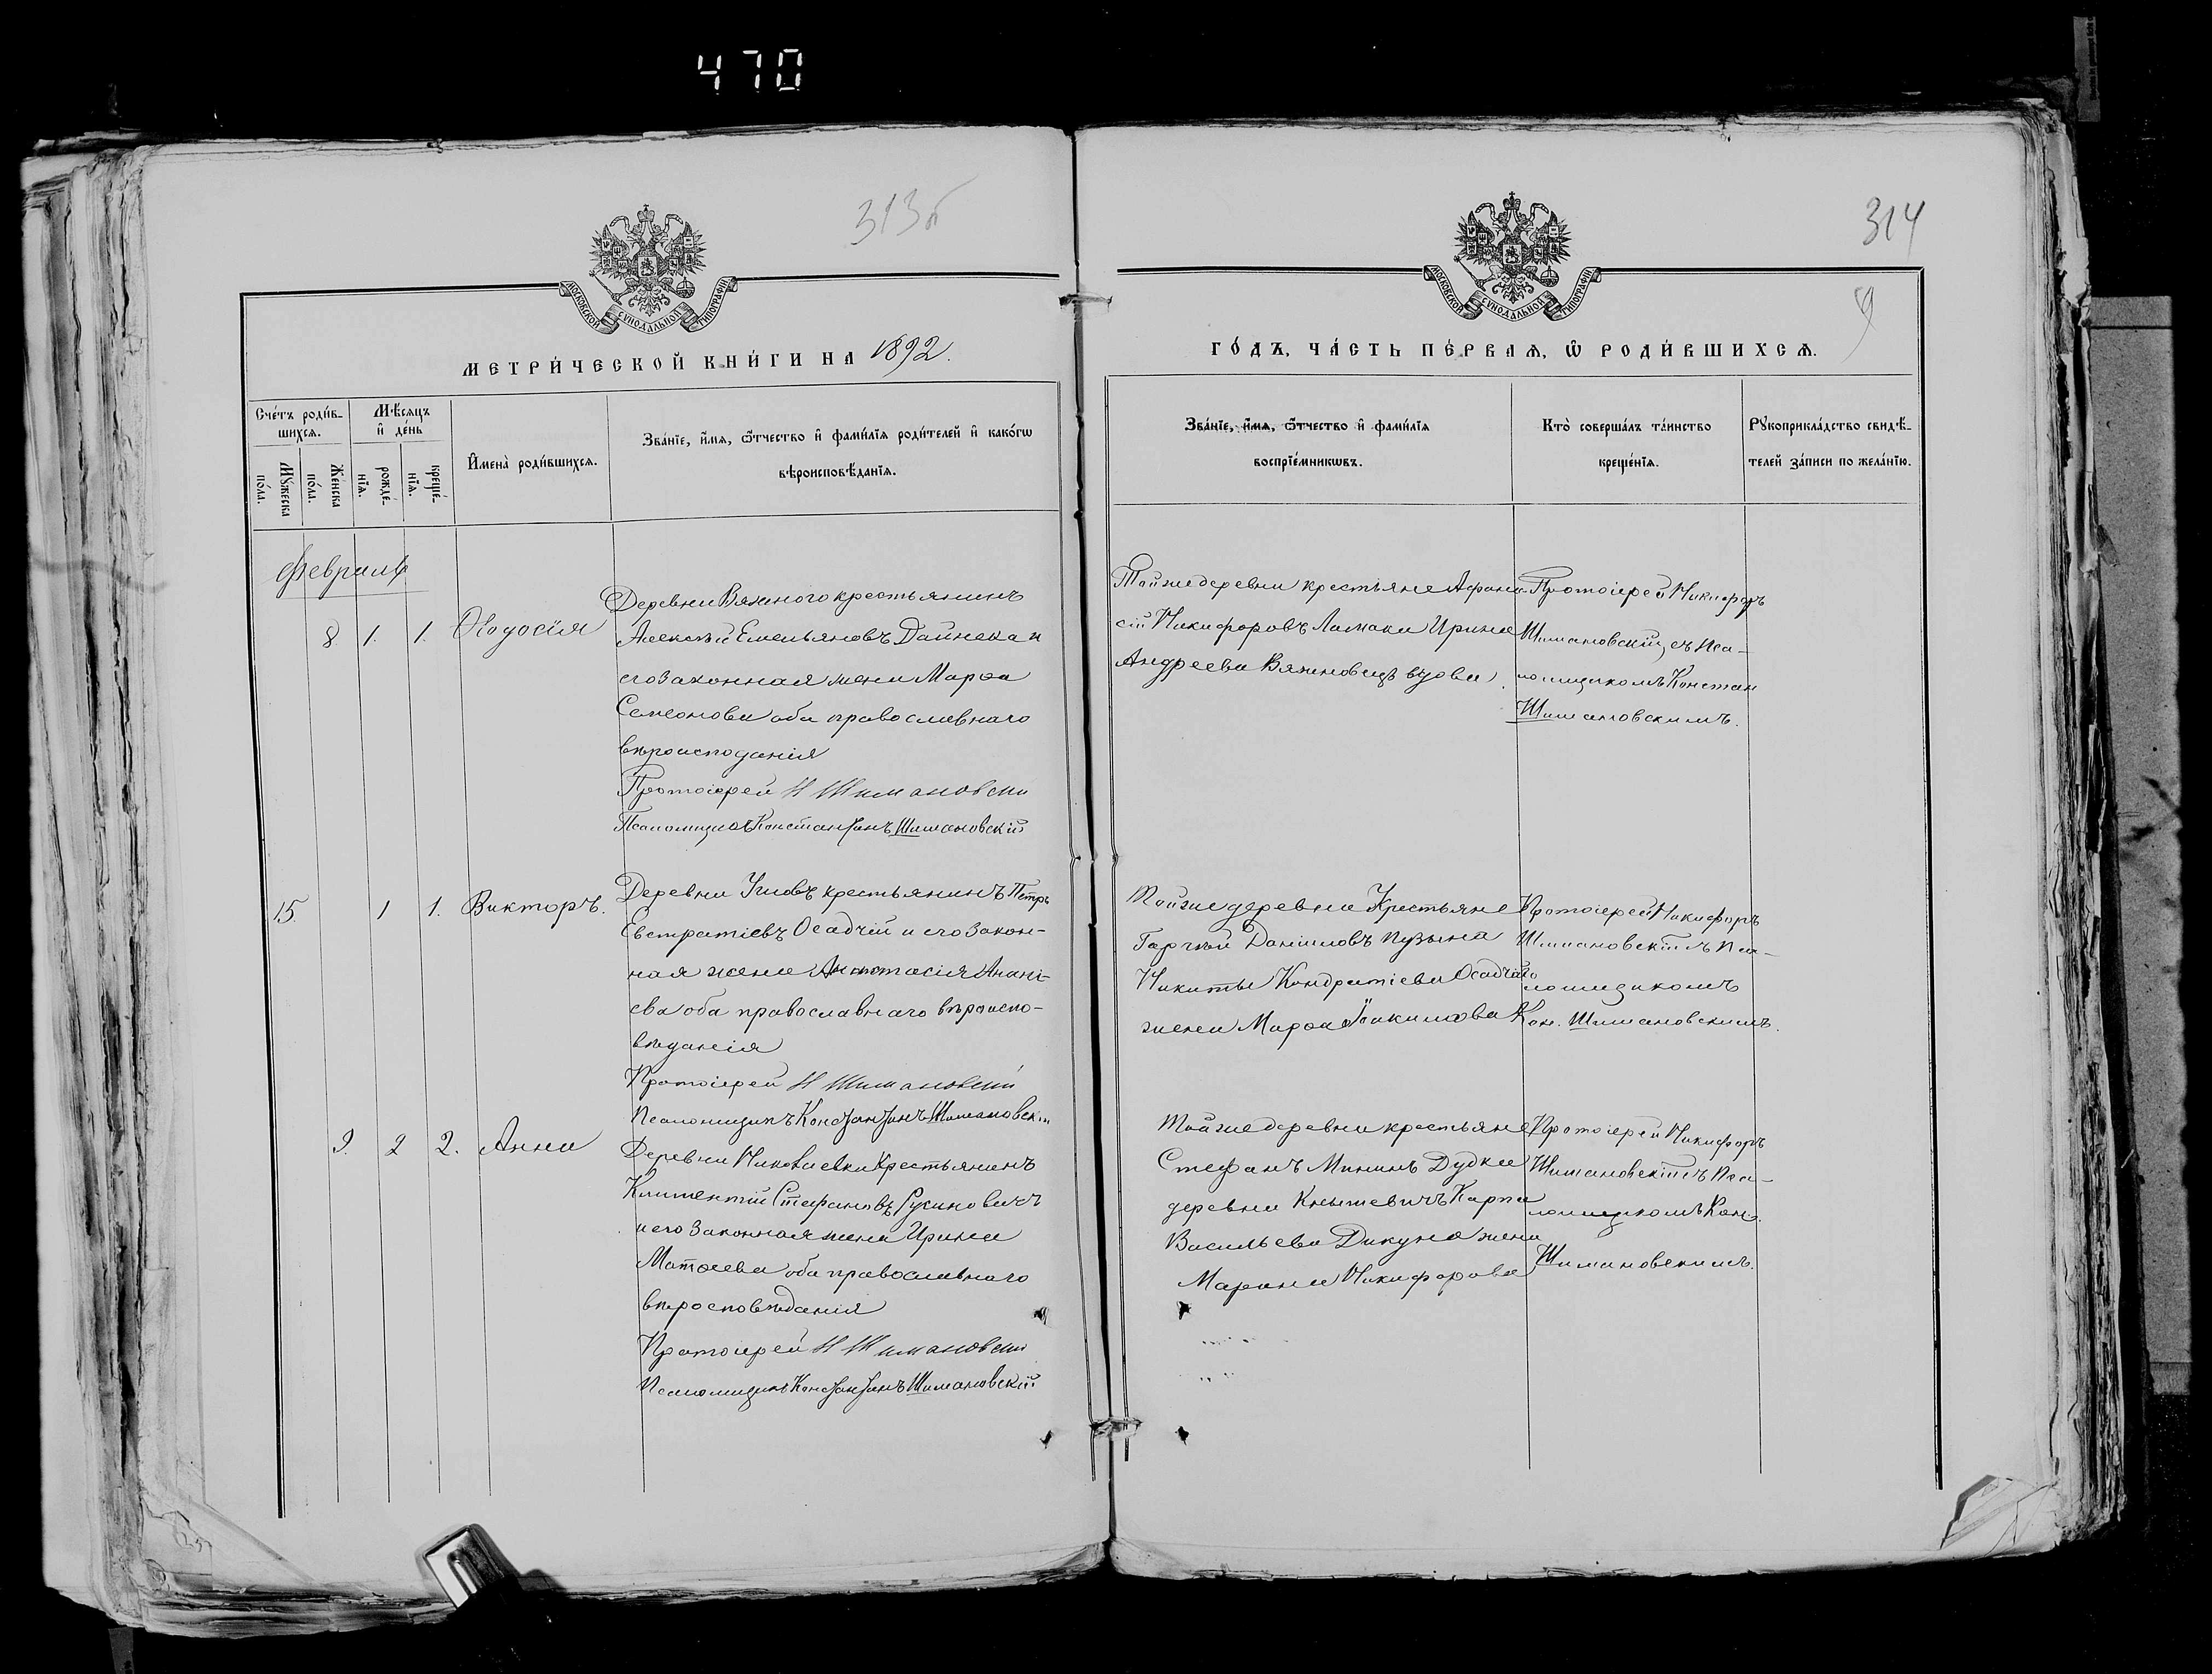 470
313б
МОСКОВСКОЙ СѴНОДАЛЬНОЙ ТИПОГРАФІИ
МЕТРИ́ЧЕСКОЙ КНИ́ГИ НА 1892.
Сче́тъ роди́в-
шихсѧ.
Мѣ́сѧцъ
и҆ де́нь
Мꙋ́жеска
по́ла.
Же́нска
по́ла.
рожде́-
нїѧ.
креще́-
нїѧ.
И҆мена̀ роди́вшихсѧ.
Зва́нїе, и҆́мѧ, ѻ҆́тчество и҆ фами́лїѧ роди́телей и҆ како́гѡ
вѣроисповѣ́данїѧ.
Февраль
8. 1. 1. Ѳеодосія
Деревни Вязиного крестьянинъ
Алексѣй Емельяновъ Дайнека и
его законная жена Марѳа
Семеонова оба православнаго
вѣроисподанія
Протоіерей Н Шимановскій
Псаломщикъ Константинъ Шимановскій
15. 1 1. Викторъ.
Деревни крестьянинъ Петръ
Евстратіевъ Осадчій и его закон-
ная жена Анастасія Анані-
ева оба православнаго вѣроиспо-
вѣданія
Протоіерей Н Шимановскій
Псаломщикъ Константинъ Шимановскій
9. 2 2. Анна
Деревни Николаевки Крестьянинъ
Климентій Стефановъ Рукиновичъ
и его законная жена Ирина
Матѳеева оба православнаго
вѣросповѣданія
Протоіерей Н Шимановскій
Псаломщикъ Константинъ Шимановскій
314
9
МОСКОВСКОЙ СѴНОДАЛЬНОЙ ТИПОГРАФІИ
ГО́ДЪ, ЧА́СТЬ ПЕ́РВАѦ, Ѡ҆ РОДИ́ВШИХСѦ.
Зва́нїе, и҆́мѧ, ѻ҆́тчество и҆ фами́лїѧ
воспрїе́мникѡвъ.
Кто̀ соверша́лъ та́инство
креще́нїѧ.
Рꙋкоприкла́дство свидѣ́-
телей за́писи по жела́нїю.
Той же деревни крестьяне Афана-
сій Никифоровъ Ломака Ирина
Андреева вдова
Протоіерей Никифоръ
Шимановскій, съ Пса-
ломщикомъ Констан
Шимановскимъ.
Той же деревни Крестьяне
Гордѣй Даніиловъ Пузына
Никиты Кондратіева Осадчаго
жена Марѳа Іоакимова
Протоіерей Никифоръ
Шимановскій съ Пса-
ломщикомъ
Кон. Шимановскимъ.
Той же деревни крестьяне
Стефанъ Мининъ Дудка
деревни Кнышевичъ Карпа
Васильева Дикуна жена
Марина Никифорова
Протоіерей Никифоръ
Шимановскій съ Пса-
ломщикомъ Кон.
Шимановскимъ.